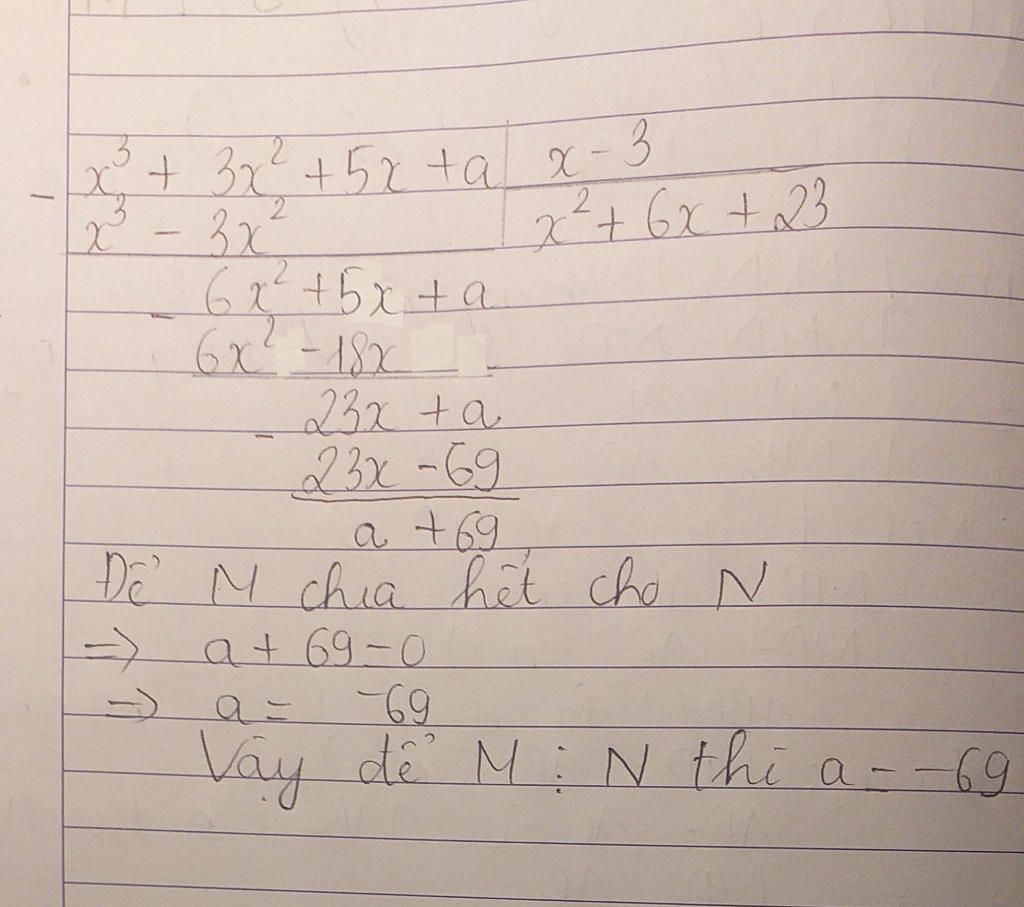 x³ + 3x² + 5x + a | x - 3
- x³ - 3x² | x² + 6x + 23
6x² + 5x + a
- 6x² - 18x
23x + a
- 23x - 69
a + 69
Để M chia hết cho N
=> a + 69 = 0
=> a = -69
Vậy để M ⋮ N thì a = -69